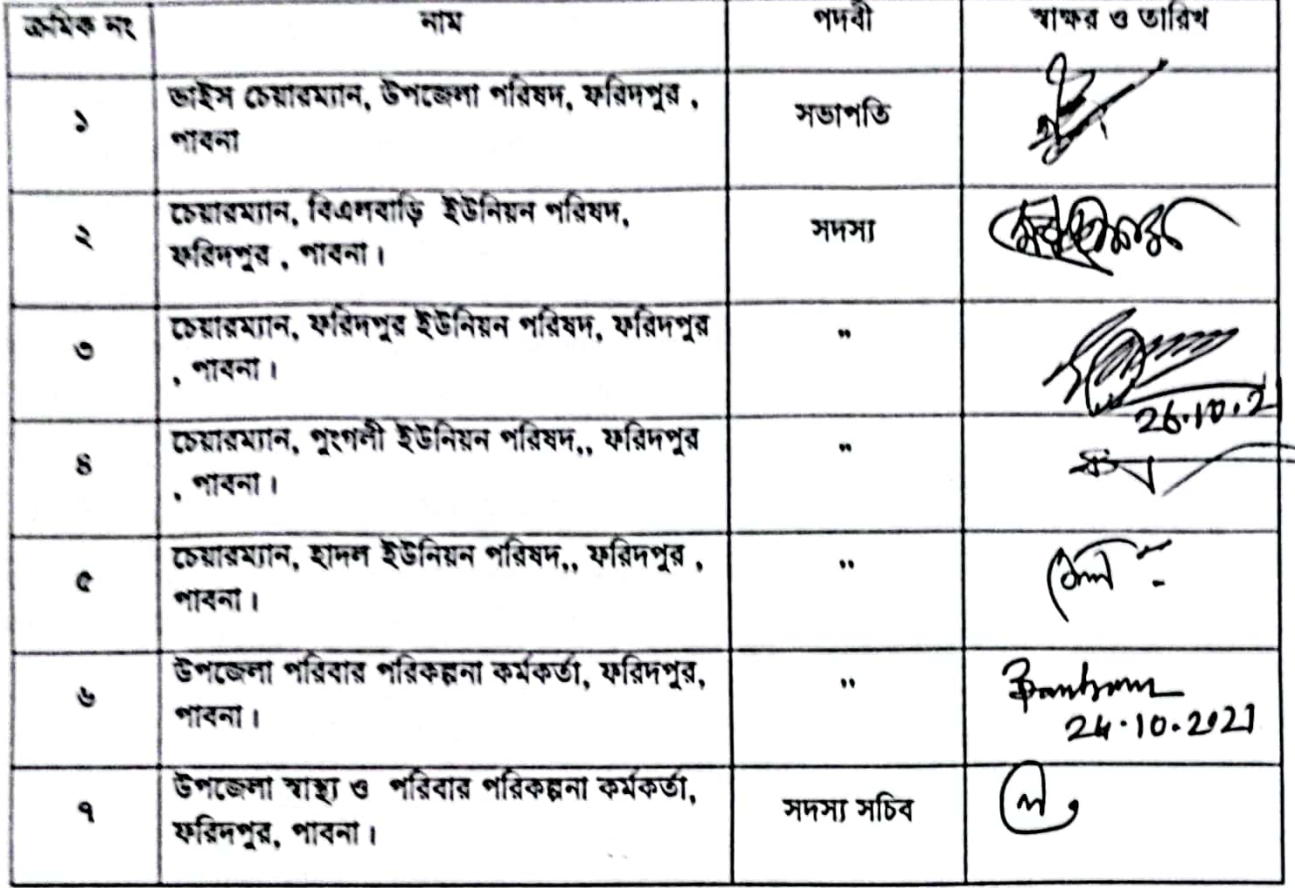 ক্রমিক নং নাম পদবী স্বাক্ষর ও তারিখ
১ ভাইস চেয়ারম্যান, উপজেলা পরিষদ, ফরিদপুর , সভাপতি
পাবনা
২ চেয়ারম্যান, বিএলবাড়ি ইউনিয়ন পরিষদ, সদস্য
ফরিদপুর , পাবনা।
৩ চেয়ারম্যান, ফরিদপুর ইউনিয়ন পরিষদ, ফরিদপুর "
, পাবনা।
26.10.21
৪ চেয়ারম্যান, পুংগলী ইউনিয়ন পরিষদ,, ফরিদপুর "
, পাবনা।
৫ চেয়ারম্যান, হাদল ইউনিয়ন পরিষদ,, ফরিদপুর , "
পাবনা।
৬ উপজেলা পরিবার পরিকল্পনা কর্মকর্তা, ফরিদপুর, "
পাবনা।
24.10.2021
৭ উপজেলা স্বাস্থ্য ও পরিবার পরিকল্পনা কর্মকর্তা, সদস্য সচিব
ফরিদপুর, পাবনা।